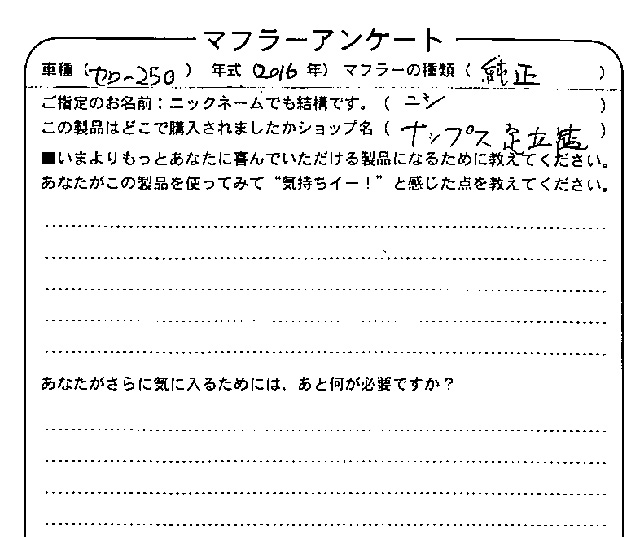 マフラーアンケート
車種（セロー250） 年式（2016年） マフラーの種類（純正）
ご指定のお名前：ニックネームでも結構です。（ニシ）
この製品はどこで購入されましたかショップ名（ナップス足立店）
■いまよりもっとあなたに喜んでいただける製品になるために教えてください。
あなたがこの製品を使ってみて“気持ちイー！”と感じた点を教えてください。
あなたがさらに気に入るためには、あと何が必要ですか？